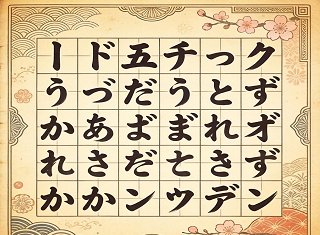 ー ド 五 チ っ ク
う づ だ う と ず
か あ ま ま れ オ
れ さ だ と き ず
か か ン ウ デ ン